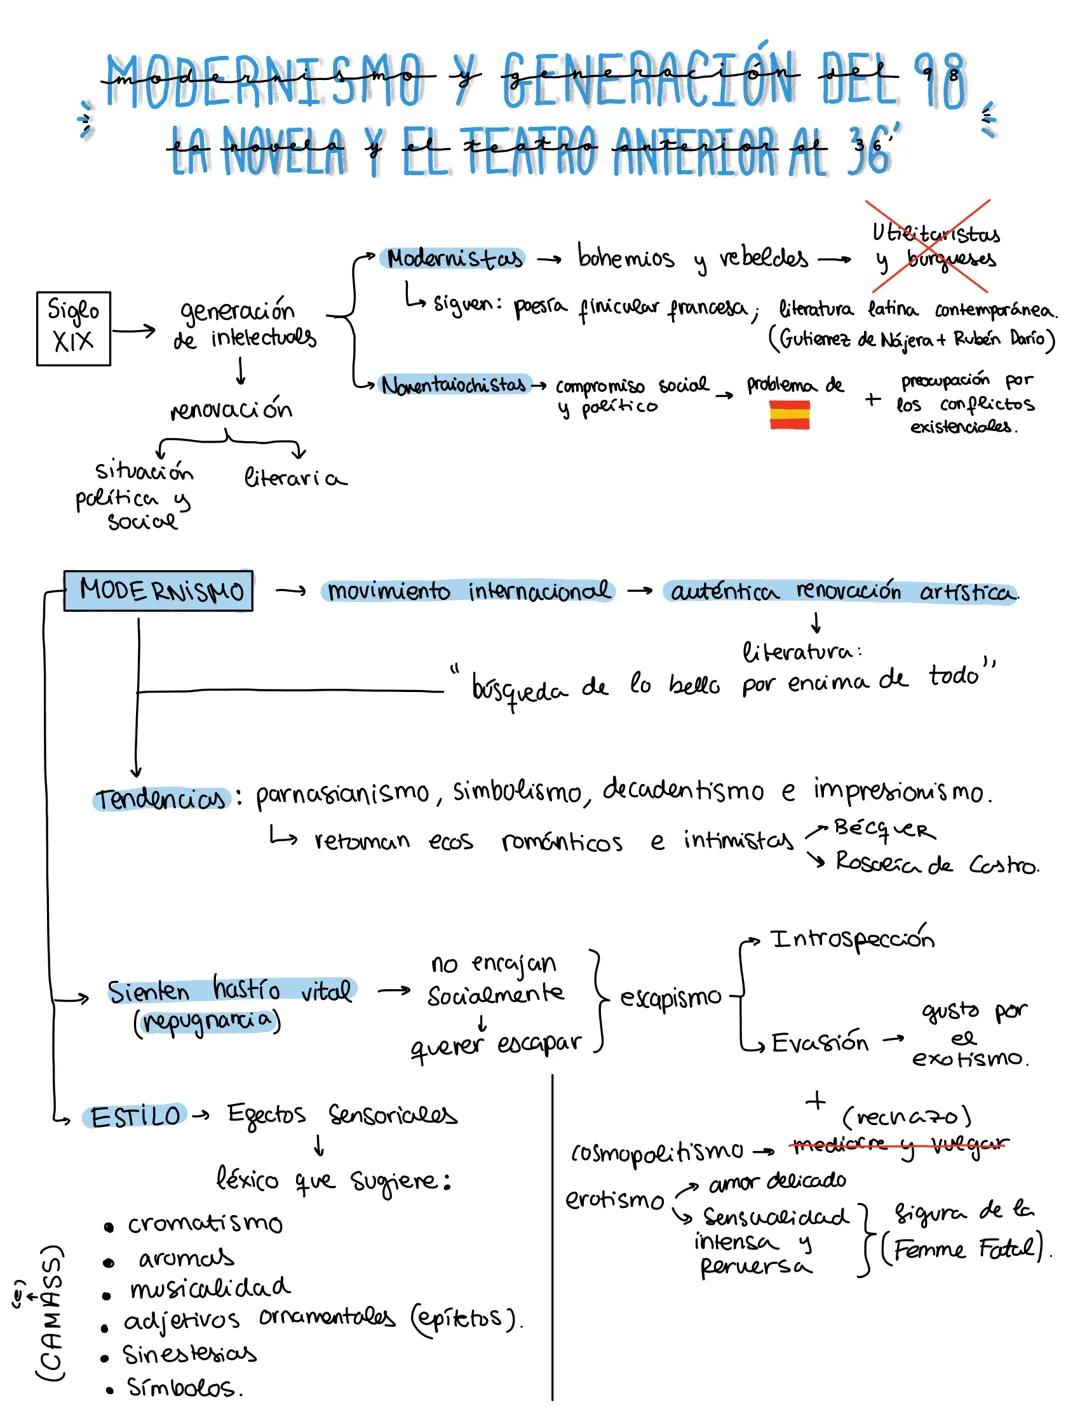 MODERNISMO Y GENERACIÓN DEL 98
modernismo y generación del 98
LA NOVELA Y EL TEATRO ANTERIOR AL 36'
la novela y el teatro anterior al 36'
Siglo
XIX
generación
de intelectuales
renovación
situación
política y
social
literaria
Modernistas → bohemios y rebeldes →
Utilitaristas
y burgueses
siguen: poesía finicular francesa; literatura latina contemporánea.
(Gutierrez de Nájera + Rubén Darío)
Noventaiochistas → compromiso social
y político
→ problema de
+
preocupación por
los conflictos
existenciales.
MODERNISMO → movimiento internacional → auténtica renovación artística.
literatura:
"búsqueda de lo bello por encima de todo"
Tendencias: parnasianismo, simbolismo, decadentismo e impresionismo.
retoman ecos románticos e intimistas
Bécquer
Rosalía de Castro.
Sienten hastío vital
(repugnancia)
no encajan
socialmente
querer escapar
escapismo
Introspección
Evasión →
gusto por
el
exotismo.
+
(rechazo)
cosmopolitismo → mediocre y vulgar
erotismo
amor delicado
Sensualidad
intensa y
perversa
figura de la
(Femme Fatal).
ESTILO → Efectos sensoriales
léxico que sugiere:
• cromatismo
• aromas
• musicalidad
• adjetivos ornamentales (epítetos).
• Sinestesias
• Símbolos.
(CAMASS)
(e)